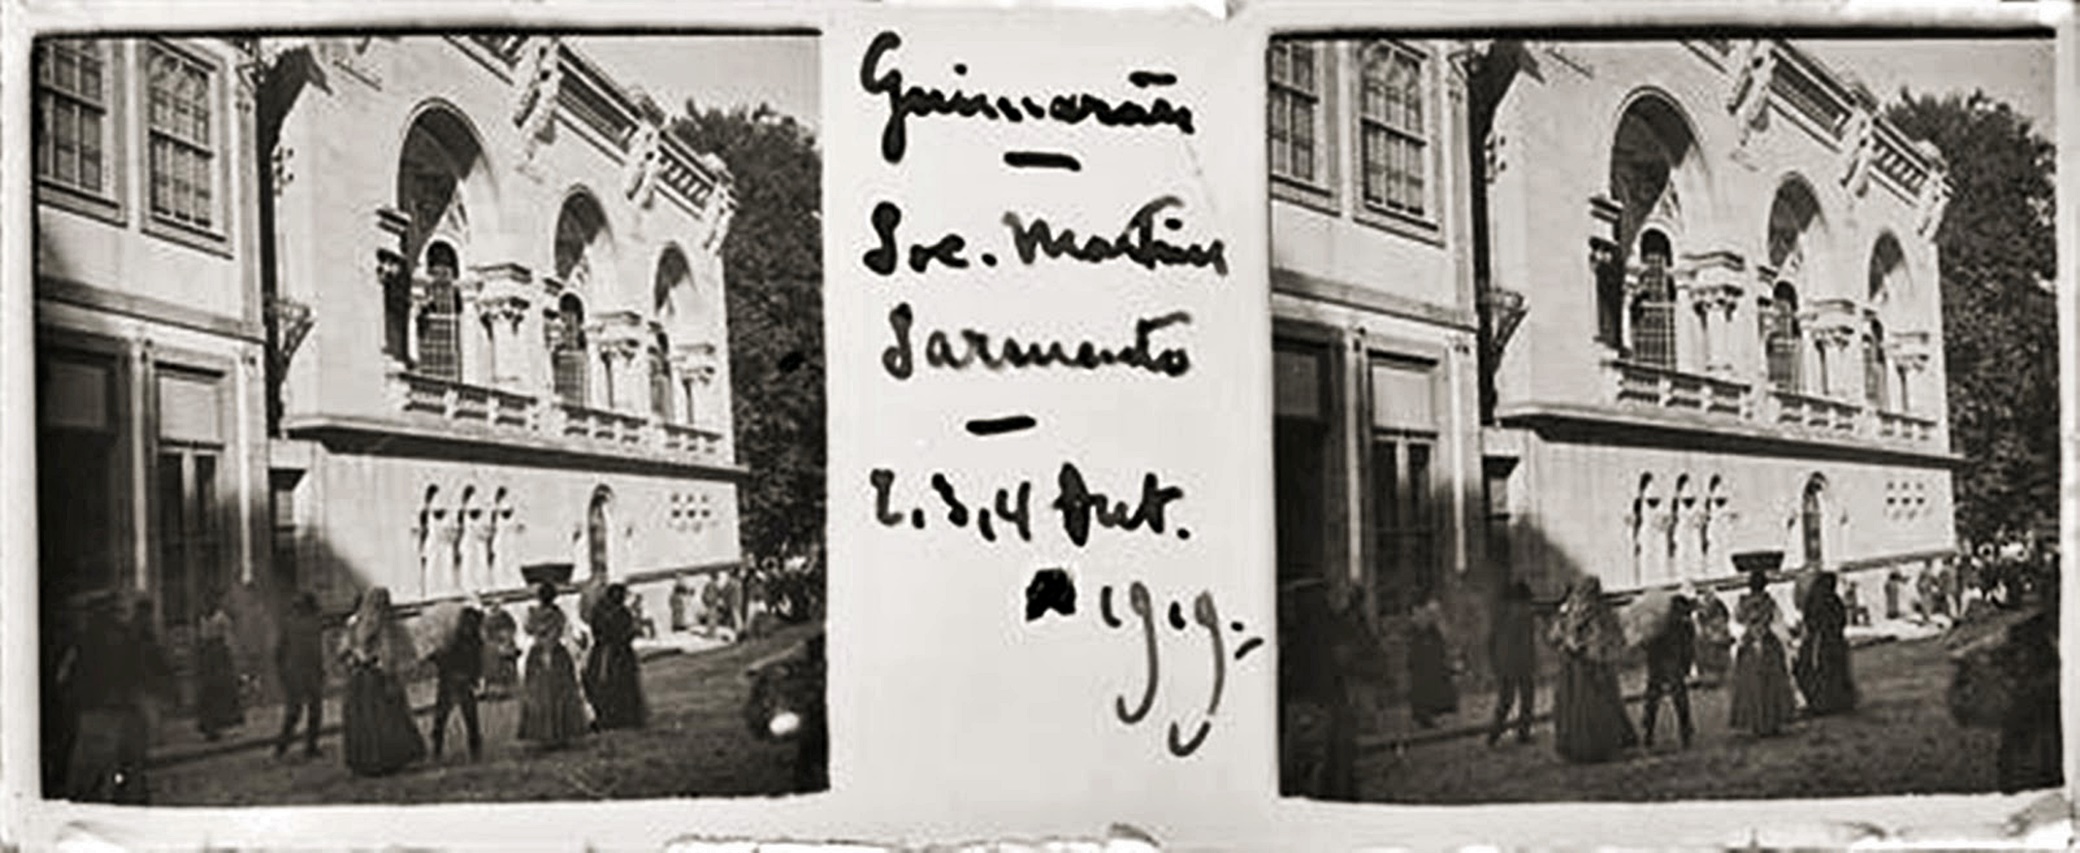 Guimarães
—
Soc. Martins
Sarmento
—
2,3,4 Out.
1919.